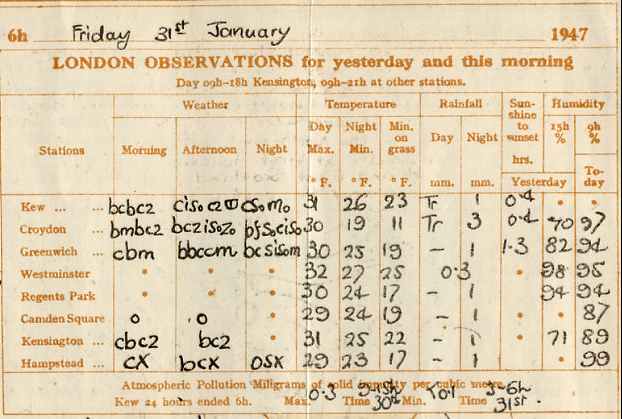 6h Friday 31st January 1947
LONDON OBSERVATIONS for yesterday and this morning
Day 09h-18h Kensington, 09h-21h at other stations.
Stations Weather Temperature Rainfall Sun-shine to sunset Humidity
Morning Afternoon Night Day Max. Night Min. Min. on grass Day Night hrs. 15h % 9h %
° F. ° F. ° F. mm. mm. Yesterday To-day
Kew ... ... bcbc2 31 26 23 Tr 1 0·4 • •
Croydon ... bmbc2 30 19 11 Tr 3 0·4 70 97
Greenwich ... cbm bbccm 30 25 19 – 1 1·3 82 94
Westminster • • • 32 27 25 0·3 • 98 95
Regents Park • • • 30 24 17 – 1 94 94
Camden Square o o 29 24 19 – 1 • • 87
Kensington ... cbc2 bc2 31 25 22 – 1 • 71 89
Hampstead ... cx bcx osx 29 23 17 – 1 • • 99
Atmospheric Pollution Miligrams of solid impurity per cubic metre.
Kew 24 hours ended 6h. Max. 0·3 Time 30th Min. 0·1 Time 3-6h 31st.